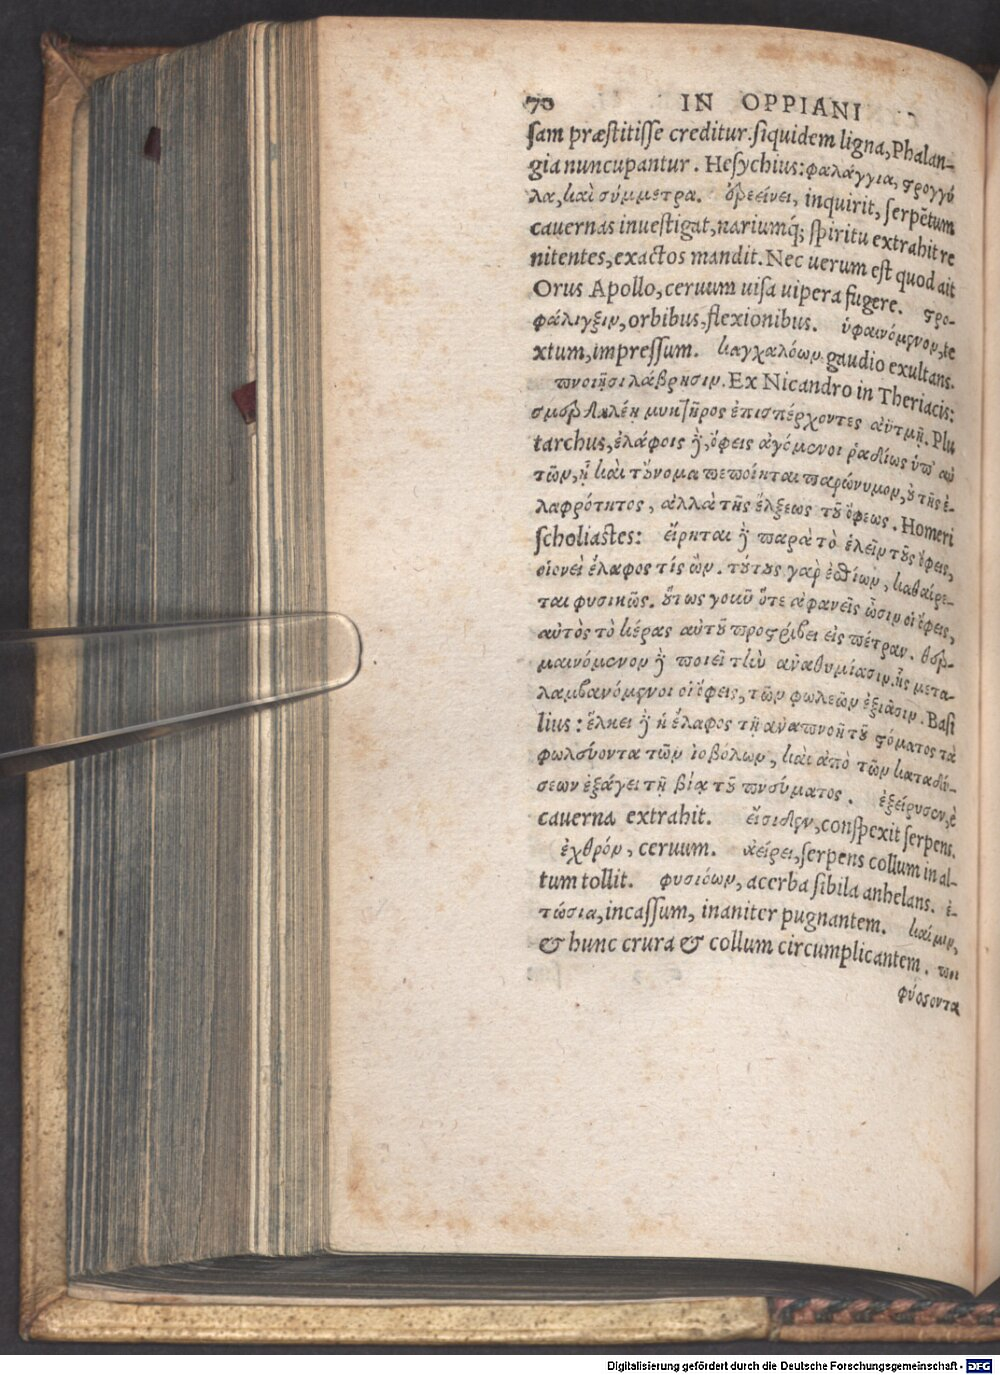 70 IN OPPIANI
sam præstitisse creditur. siquidem ligna, Phalan-
gia nuncupantur. Hesychius: φαλάγγια, στρογγύ
λα, καὶ σύμμετρα. ὀρεείνει, inquirit, serpẽtum
cauernas inuestigat, nariumq́; spiritu extrahit re
nitentes, exactos mandit. Nec uerum est quod ait
Orus Apollo, ceruum uisa uipera fugere. στρο-
φάλιγξιν, orbibus, flexionibus. ὑφαινόμενον, te
xtum, impressum. καγχαλόων gaudio exultans.
πνοιῇσι λάβρῃσιν. Ex Nicandro in Theriacis:
μυκτῆρος ἐπισπέρχοντες ἀϋτμῇ. Plu
tarchus, ἐλάφοις δὲ, ὄφεις ἀγόμενοι ῥαδίως ὑπ' αὐ
τῶν, ᾗ καὶ τοὔνομα πεποίηται παρώνυμον, οὐ τῆς ἐ-
λαφρότητος, ἀλλὰ τῆς ἕλξεως τοῦ ὄφεως. Homeri
scholiastes: εἴρηται δὲ παρὰ τὸ ἑλεῖν τοὺς ὄφεις,
οἱονεὶ ἕλαφος τίς ὤν. τούτους γὰρ ἐσθίων, καθαίρε-
ται φυσικῶς. οὕτως γοῦν ὅτε ἀφανεῖς ὦσιν οἱ ὄφεις,
αὐτὸς τὸ κέρας αὐτοῦ προστρίβει εἰς πέτραν. θερ-
μαινόμενον δὲ ποιεῖ τὴν ἀναθυμίασιν. ἧς μετα-
λαμβανόμενοι οἱ ὄφεις, τῶν φωλεῶν ἐξιᾶσιν. Basi
lius: ἕλκει δὲ ἡ ἔλαφος τῇ ἀναπνοῇ τοῦ στόματος τὰ
φωλεύοντα τῶν ἰοβόλων, καὶ ἀπὸ τῶν καταδύ-
σεων ἐξάγει τῇ βίᾳ τοῦ πνεύματος. ἐξείρυσεν, è
cauerna extrahit. εἴσιδεν, conspexit serpens.
ἐχθρόν, ceruum. ἀείρει, serpens collum in al-
tum tollit. φυσιόων, acerba sibila anhelans. ἐ-
τώσια, incassum, inaniter pugnantem. καί μιν,
& hunc crura & collum circumplicantem. ποι
φύσσοντα
Digitalisierung gefördert durch die Deutsche Forschungsgemeinschaft - DFG